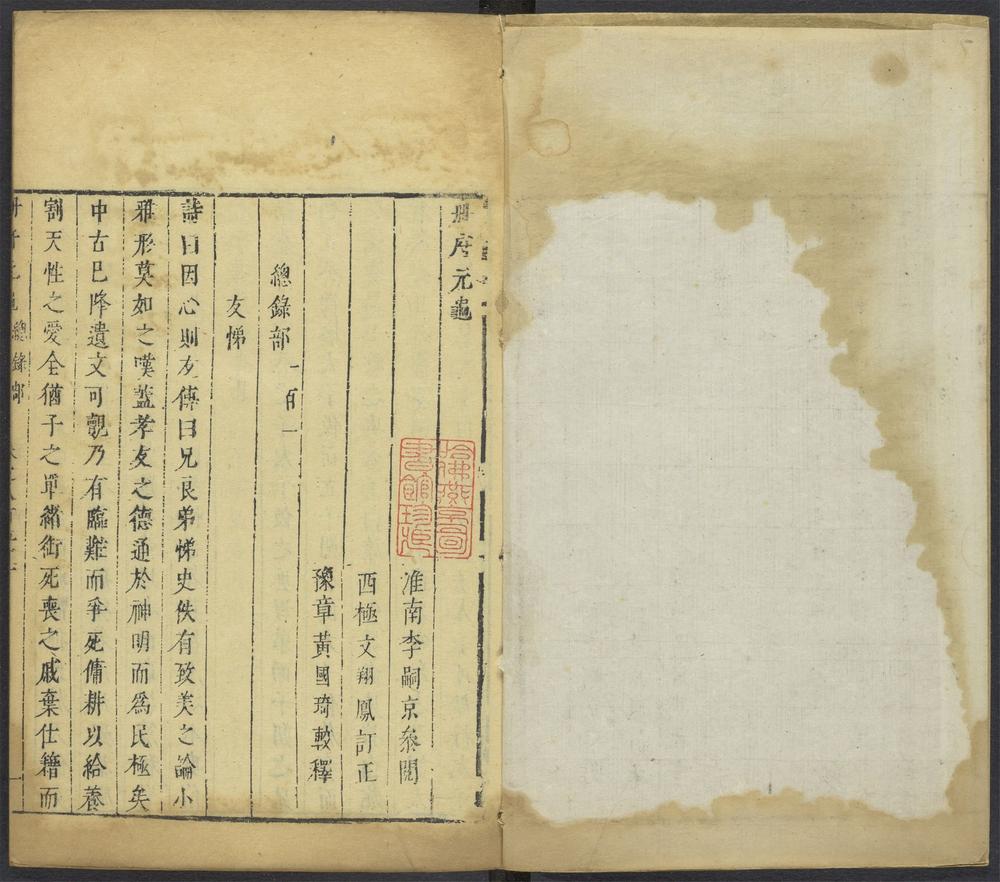 冊府元龜
淮南李嗣京叅閱
西極文翔鳳訂正
豫章黃國琦較釋
總錄部 一百一
友悌
詩曰因心則友傳曰兄良弟悌史佚有致美之論小
雅形莫如之嘆蓋孝友之德通於神明而爲民極矣
中古已降遺文可覩乃有臨難而爭死傭耕以給養
割天性之愛全猶子之單緒銜死喪之戚棄仕籍而
冊府元龜 總錄部
哈佛燕京圖
書館珍藏